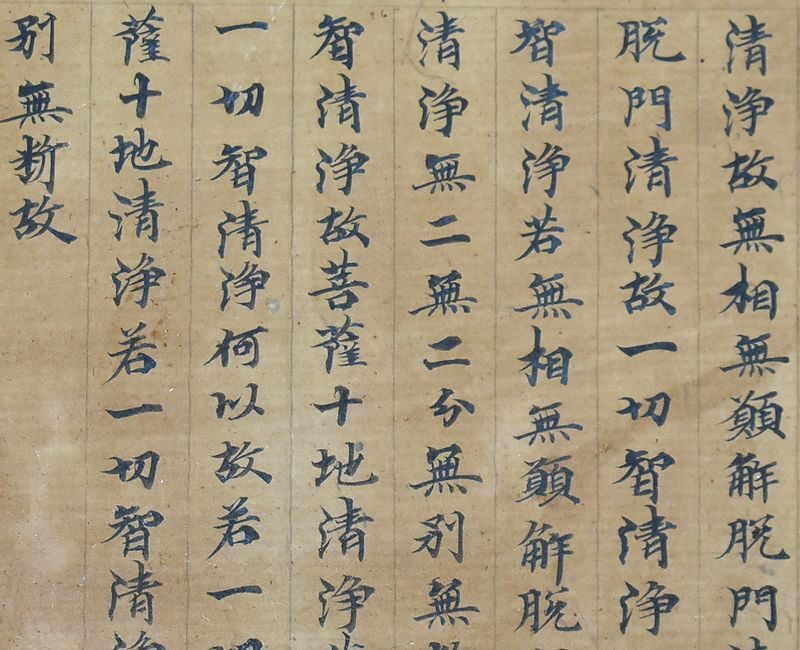 清淨故無相無願解脫門
脫門清淨故一切智清淨
智清淨若無相無願解脫
清淨無二無二分無別無
智清淨故菩薩十地清淨
一切智清淨何以故若一
薩十地清淨若一切智清
別無斷故